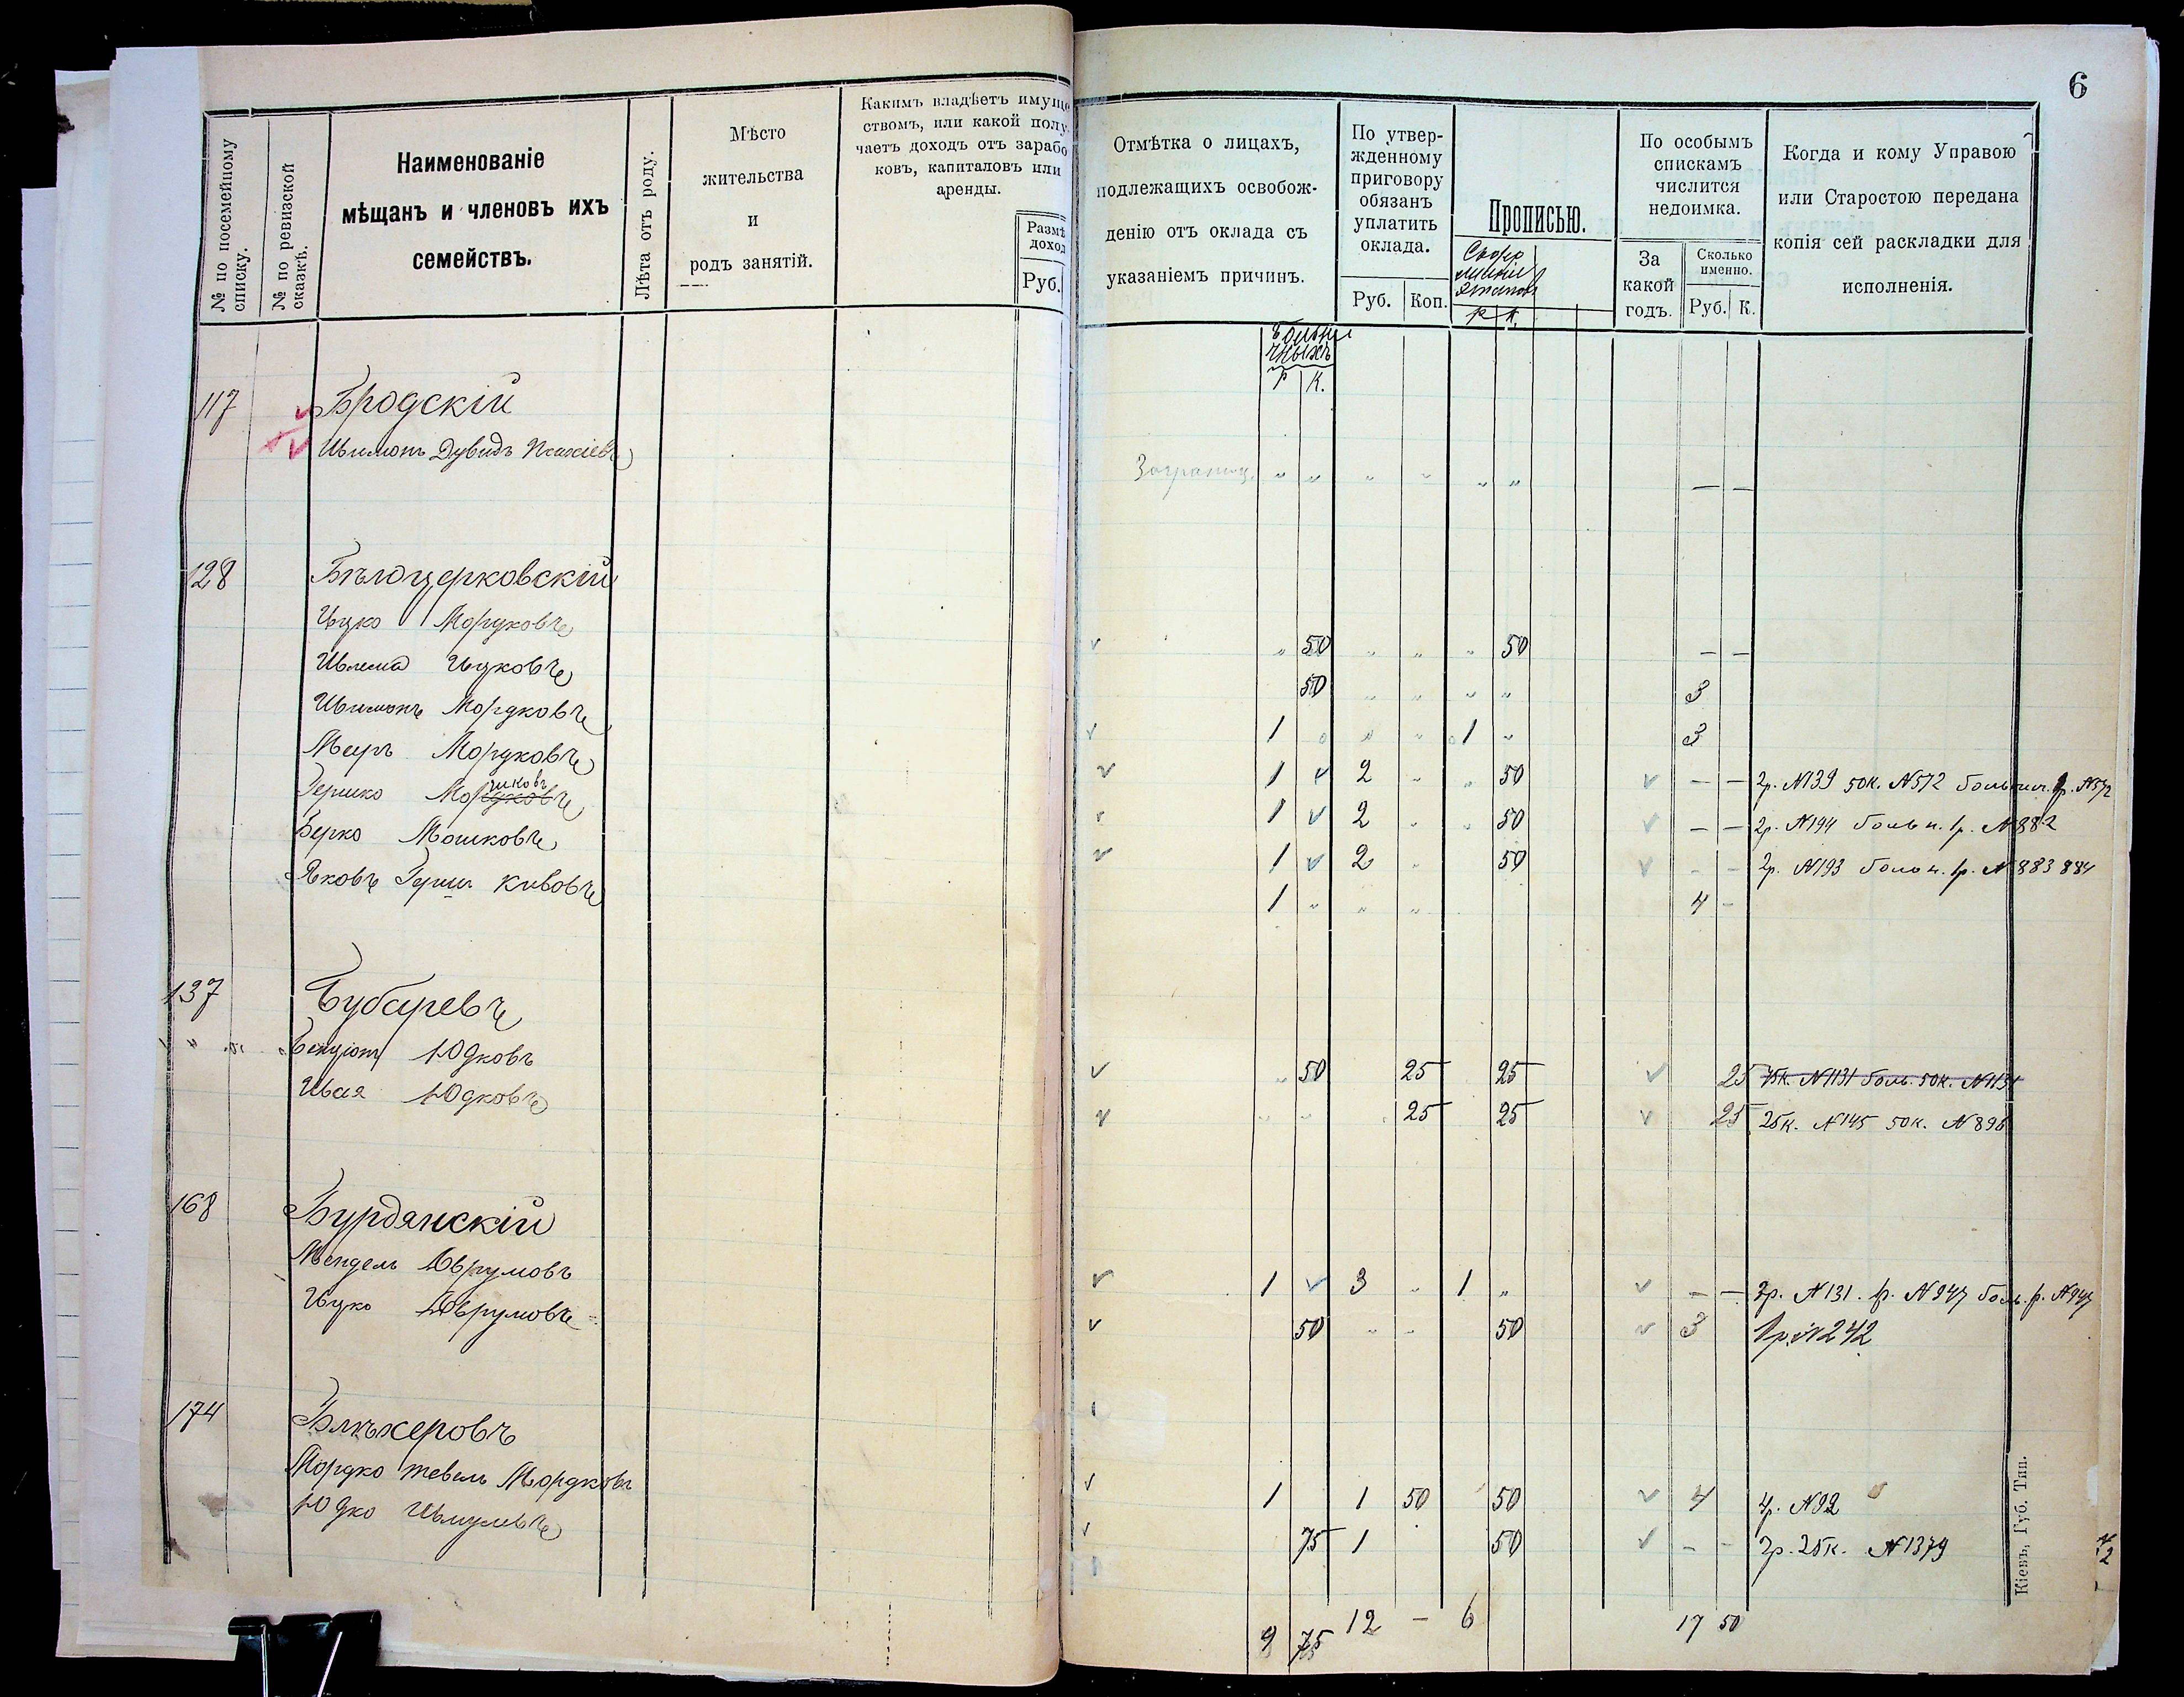 6
№ по посемейному списку.
№ по ревизской сказкѣ.
Наименованіе
мѣщанъ и членовъ ихъ
семействъ.
Лѣта отъ роду.
Мѣсто
жительства
и
родъ занятій.
Какимъ владѣетъ имуще
ствомъ, или какой полу
чаетъ доходъ отъ зарабо
ковъ, капиталовъ или
аренды.
Размѣ
доход
Руб.
Отмѣтка о лицахъ,
подлежащихъ освобож-
денію отъ оклада съ
указаніемъ причинъ.
По утвер-
жденному
приговору
обязанъ
уплатить
оклада.
Руб. Коп.
Прописью.
По особымъ
спискамъ
числится
недоимка.
За
какой
годъ.
Сколько
именно.
Руб. К.
Когда и кому Управою
или Старостою передана
копія сей раскладки для
исполненія.
Р К.
117 Бродскій
Шимонъ Дувидъ
Заграниц. " " " " " " — —
128 Бѣлоцерковскій
Ицко Мордковъ " 50 " " " 50 — —
Шлема Ицковъ 50 " " " " 3
Шимонъ Мордковъ 1 " " " 1 " 3
Меиръ Мордковъ 1 2 " " 50 — — 2р. №139 50к. №572 больнич. 1р. №572
Гершко Мордковъ 1 2 " " 50 — — 2р. №194 больн. 1р. №882
Берко Мошковъ 1 2 " 50 - - 2р. №193 больн. 1р. №883 884
Яковъ Герш Кивовъ 1 " " " 4 -
137 Бубаревъ
Бенціонъ Юдковъ " 50 25 25 25 75к. №1131 боль. 50к. №1131
Шая Юдковъ " " 25 25 25 25к. №145 50к. №896
168 Бурдянскій
Мендель Аврумовъ 1 3 " 1 " — — 3р. №131. 1р. №947 боль. р. №947
Ицко Аврумовъ 50 " " 50 3 1р. №242
174
Мордко Тевель Мордковъ 1 1 50 50 4 4р. №92
Юдко Шмулевъ 75 1 50 - - 2р. 25к. №1379
9 75 12 — 6 17 50
Кіевъ, Губ. Тип.